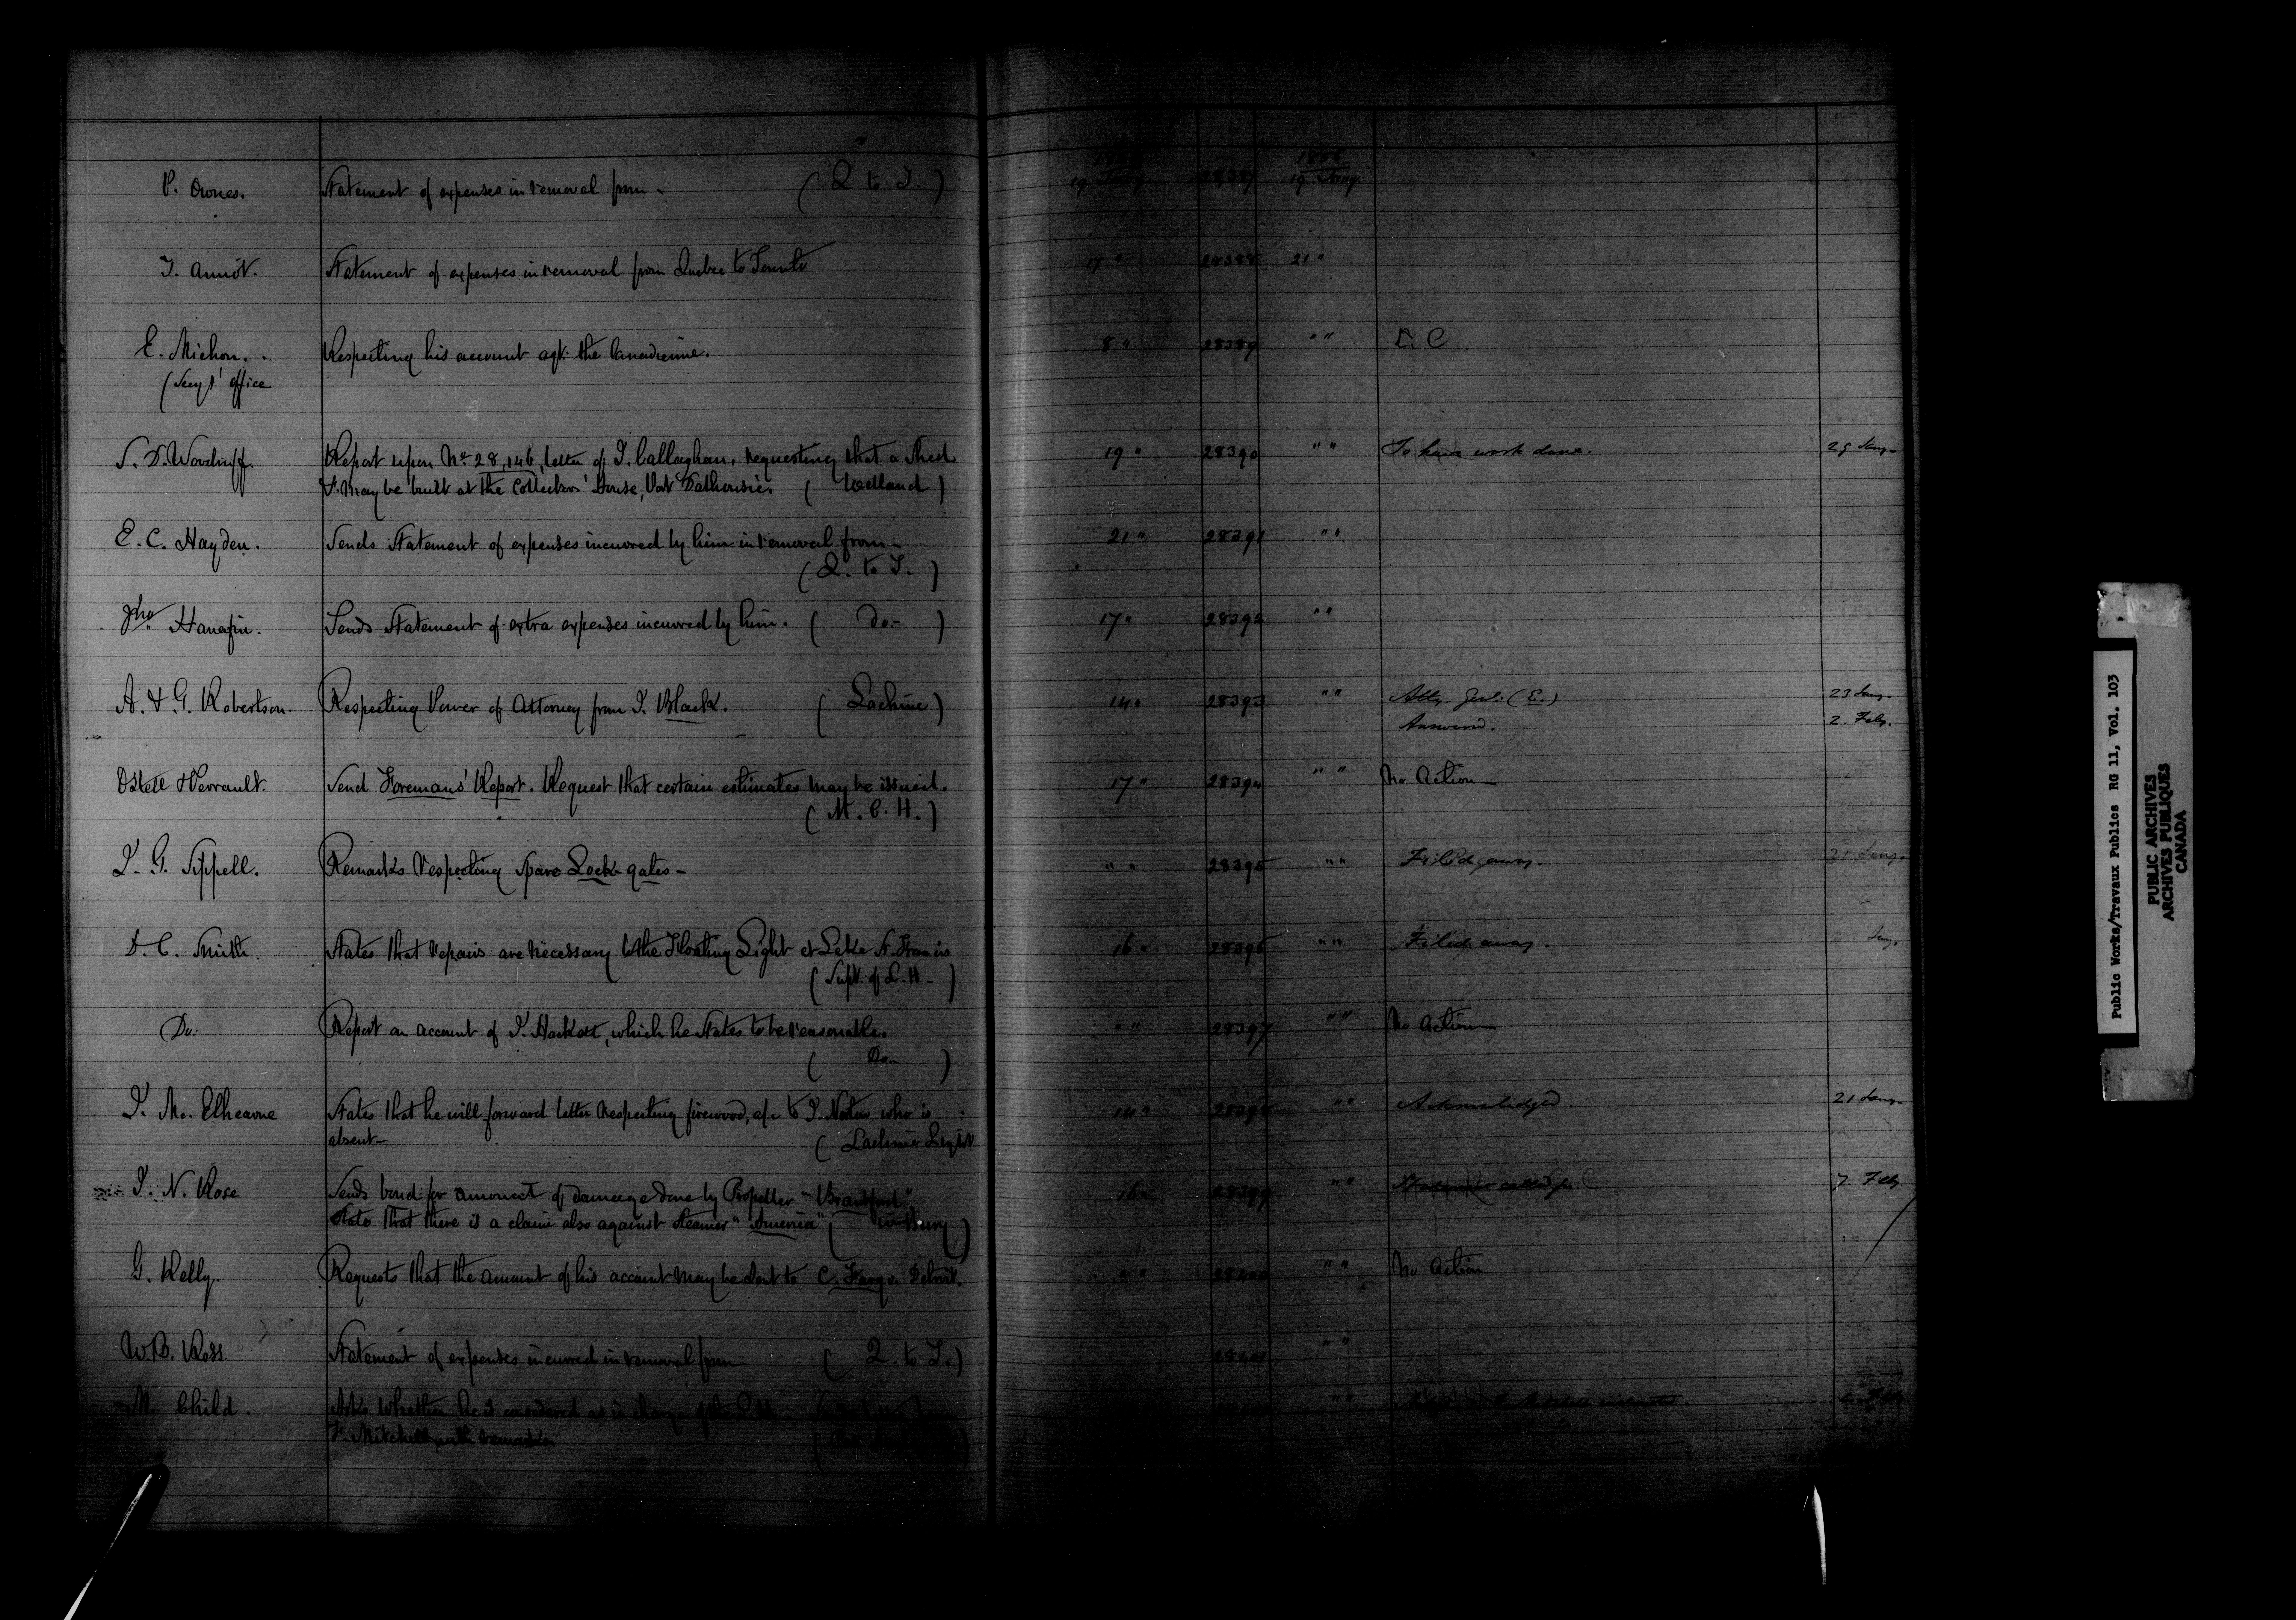 P. Ownes. Statement of expenses in removal from - ( Q to T. ) 19 Jany 28387 1856 19 Jany.
T. Annot. Statement of expenses in removal from Quebec to Toronto 17 " 28388 21 "
E. Michon. Respecting his account agt. the Canadienne. 8 " 28389 " " D. C
office
S. D. Woodruff. Report upon No 28,146, letter of T. Callaghan, requesting that a shed 19 " 28390 " " To have work done. 29 Jany.
may be built at the Collectors' House, Port Dalhousie. ( Welland )
E. C. Hayden. Sends Statement of expenses incurred by him in removal from - 21 " 28391 " "
( Q. to T. )
Jno Hanafin. Sends Statement of extra expenses incurred by him. ( Do. ) 17 " 28392 " "
A. & G. Robertson. Respecting Power of Attorney from J. Black. ( Lachine ) 14 " 28393 " " Atty. Genl. (E.) 23 Jany.
Answered. 2. Feby.
Ostell & Perrault. Send Foremans' Report. Request that certain estimates may be issued. 17 " 28394 " " No Action
( M. C. H. )
J. G. Sippell. Remarks respecting spare Lock-gates - " " 28395 " " Filed away. 21 Jany.
D. C. Smith. States that repairs are necessary to the Floating Light at Lake St. Francis 16 " 28396 " " Filed away. Jany.
( Supt. of L. H. )
Do. Report on account of J. Hackett, which he states to be reasonable. " " 28397 " " No action
( Do. )
J. Mc. Elhearne States that he will forward letter respecting firewood, &c to J. Norton who is 14 " 28398 " " Acknowledged 21 Jany.
absent - ( Lachine Light
J. N. Rose Sends bond for amount of damage done by Propeller "Brantford" 16 " 28399 " " 7. Feby.
States that there is a claim also against Steamer "America" ( Wmsburg )
G. Kelly. Requests that the amount of his account may be sent to C. Fargo. Detroit. " " 28400 " " No Action
W. B. Ross Statement of expenses incurred in removal from ( Q. to T. ) 28401 " "
M. Child. Asks whether he is considered as in charge " " Feby
Mitchell with remarks
Public Works/Travaux Publics RG 11, Vol. 103
PUBLIC ARCHIVES
ARCHIVES PUBLIQUES
CANADA